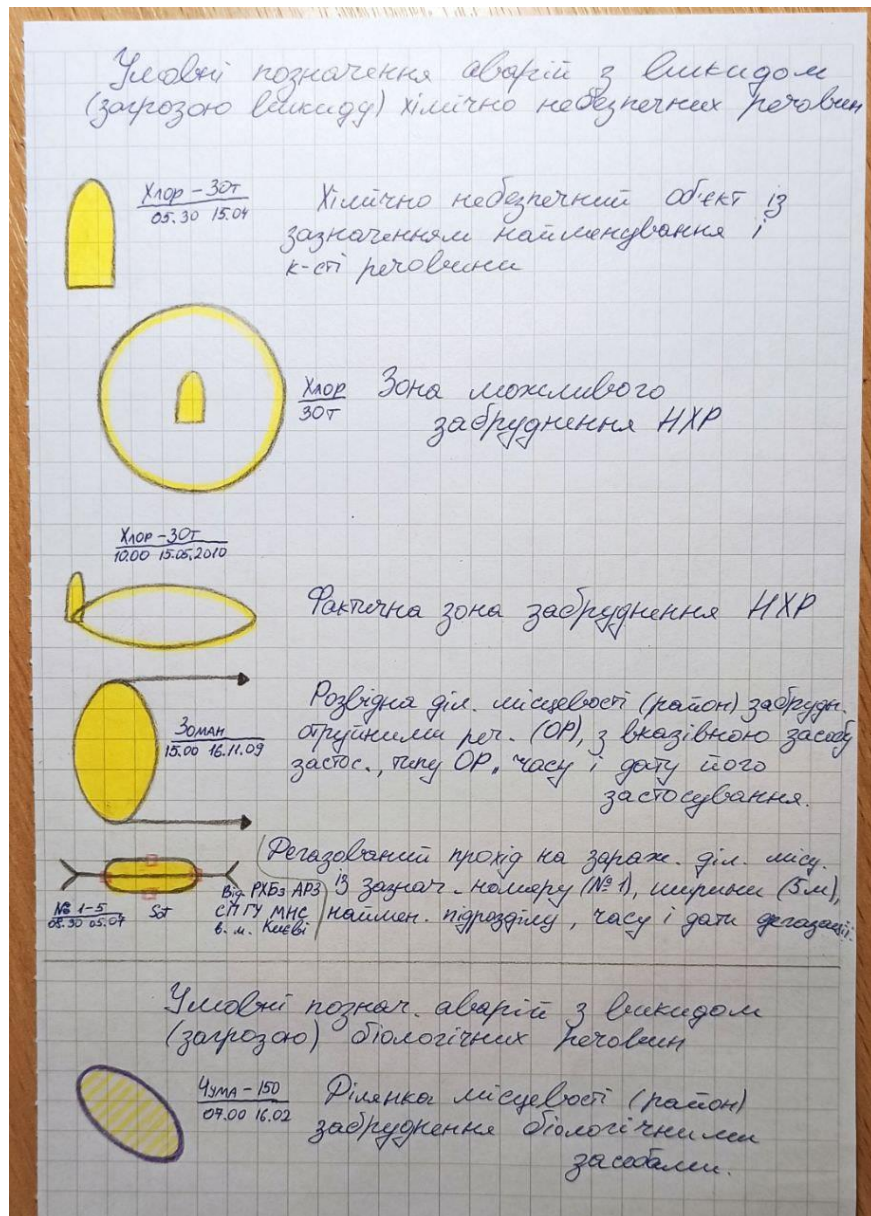 Умовні позначення аварій з викидом
(загрозою викиду) хімічно небезпечних речовин
Хлор - 30т
05.30 15.04
Хімічно небезпечний об'єкт із
зазначенням найменування і
к-сті речовини
Хлор
30т
Зона можливого
забруднення НХР
Хлор - 30т
10.00 15.05.2010
Фактична зона забруднення НХР
Зоман
15.00 16.11.09
Розвідна діл. місцевості (район) забрудн.
отруйними реч. (ОР), з вказівкою засобу
застос., типу ОР, часу і дату його
застосування.
№ 1-5
05.30 05.04
Sot
Від РХБз АРЗ
СП ГУ МНС
в. м. Києві
Дегазований прохід на зараж. діл. місц.
із зазнач. номеру (№ 1), ширини (5м),
наймен. підрозділу, часу і дати дегазації.
Умовні познач. аварій з викидом
(загрозою) біологічних речовин
Чума - 150
07.00 16.02
Ділянка місцевості (район)
забруднення біологічними
засобами.